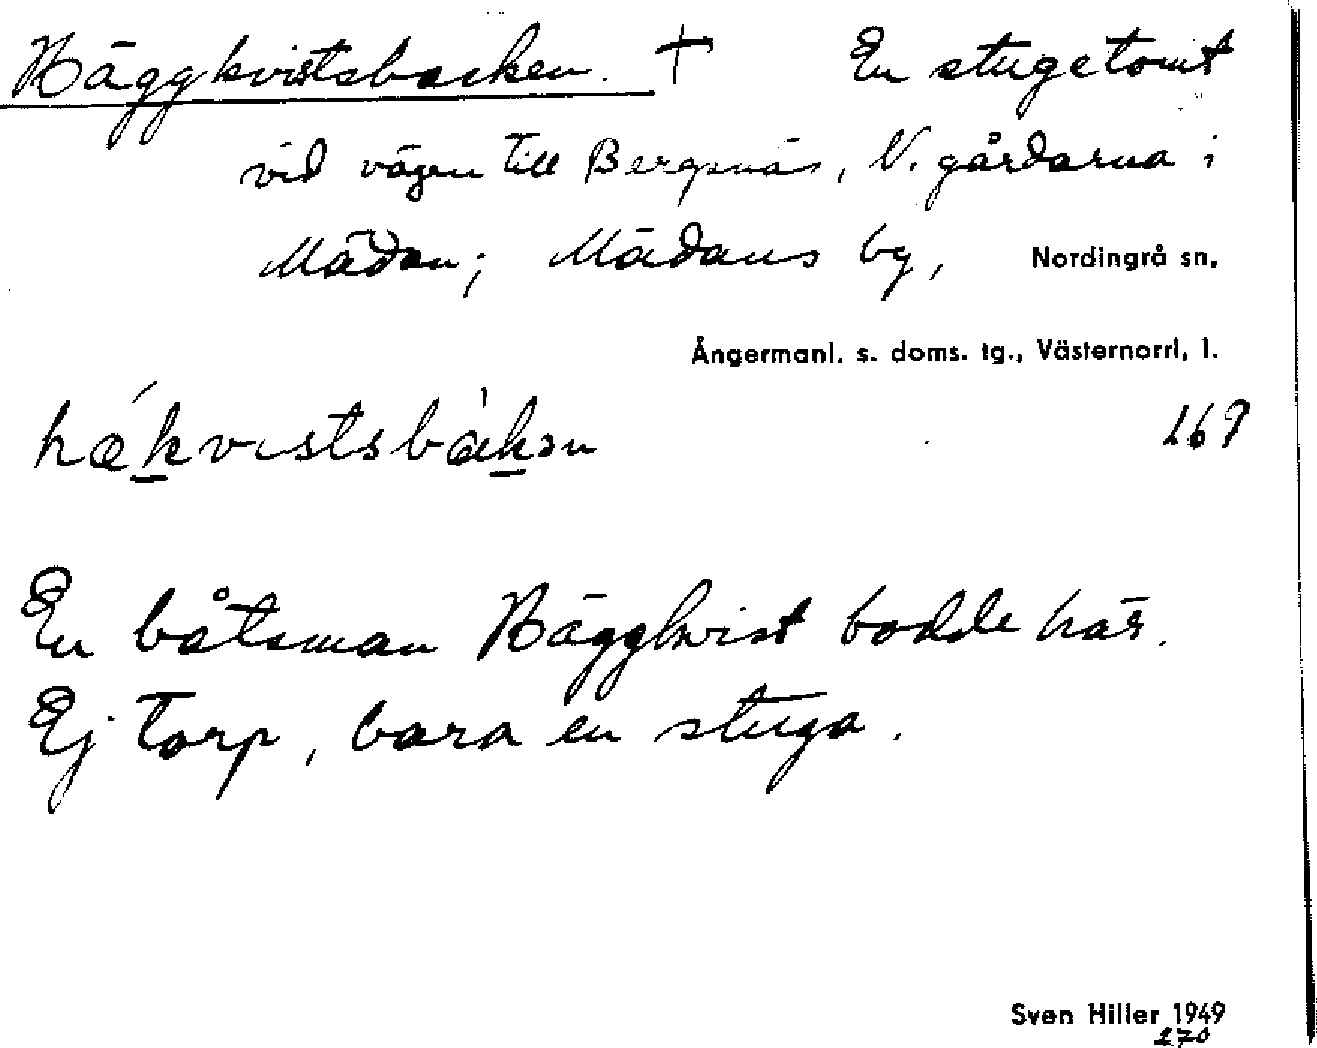 Häggkvistsbacken. † En stugetomt
vid vägen till Bergsnäs, N. gårdarna i
Mädan; Mädans by, Nordingrå sn,
Ångermanl. s. doms. tg., Västernorrl, l.
hækvistsbàkən 169
En båtsman Häggkvist bodde här.
Ej torp, bara en stuga.
Sven Hiller 1949
270